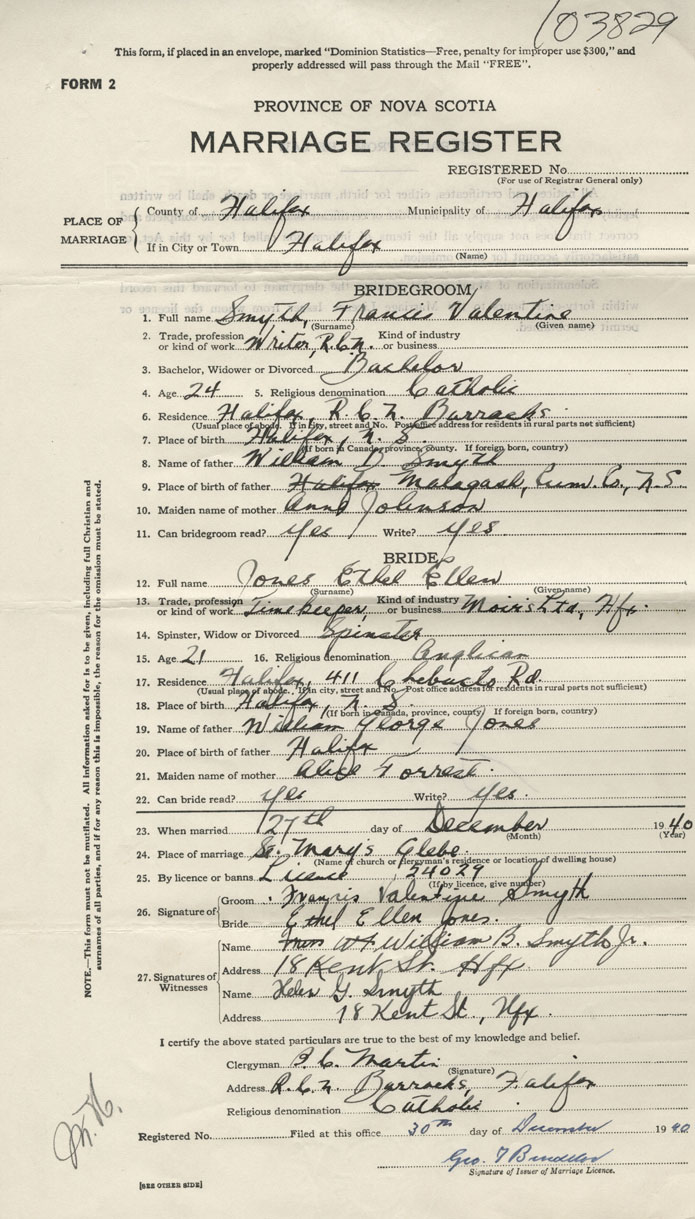 103829
This form, if placed in an envelope, marked "Dominion Statistics—Free, penalty for improper use $300," and
properly addressed will pass through the Mail "FREE".
FORM 2
PROVINCE OF NOVA SCOTIA
MARRIAGE REGISTER
REGISTERED No.
(For use of Registrar General only)
PLACE OF MARRIAGE
County of Halifax Municipality of Halifax
If in City or Town Halifax
(Name)
BRIDEGROOM
1. Full name Smyth, Francis Valentine
(Surname) (Given name)
2. Trade, profession or kind of work Writer, R.C.N. Kind of industry or business
3. Bachelor, Widower or Divorced Bachelor
4. Age 24 5. Religious denomination Catholic
6. Residence Halifax, R.C.N. Barracks.
(Usual place of abode. If in city, street and No. Post office address for residents in rural parts not sufficient)
7. Place of birth Halifax, N.S.
(If born in Canada, province, county. If foreign born, country)
8. Name of father William D Smyth
9. Place of birth of father Halifax Malagash, Cum. Co., N.S.
10. Maiden name of mother Anne Johnson
11. Can bridegroom read? yes Write? yes
BRIDE
12. Full name Jones Ethel Ellen
(Surname) (Given name)
13. Trade, profession or kind of work Timekeeper Kind of industry or business Moirs Ltd, Hfx.
14. Spinster, Widow or Divorced Spinster
15. Age 21 16. Religious denomination Anglican
17. Residence Halifax, 411 Chebucto Rd.
(Usual place of abode. If in city, street and No. Post office address for residents in rural parts not sufficient)
18. Place of birth Halifax, N.S.
(If born in Canada, province, county. If foreign born, country)
19. Name of father William George Jones
20. Place of birth of father Halifax
21. Maiden name of mother Alice Forrest.
22. Can bride read? yes Write? yes.
23. When married 27th day of December 1940
(Month) (Year)
24. Place of marriage St. Mary's Glebe
(Name of church or clergyman's residence or location of dwelling house)
25. By licence or banns Licence 54029
(If by licence, give number)
26. Signature of
Groom Francis Valentine Smyth
Bride Ethel Ellen Jones.
27. Signatures of Witnesses
Name William B. Smyth Jr.
Address 18 Kent St. Hfx
Name Helen G. Smyth
Address 18 Kent St., Hfx.
I certify the above stated particulars are true to the best of my knowledge and belief.
Clergyman Martin
(Signature)
Address R.C.N. Barracks, Halifax
Religious denomination Catholic
Registered No. Filed at this office 30th day of December 1940.
Geo.
Signature of Issuer of Marriage Licence.
[SEE OTHER SIDE]
NOTE.—This form must not be mutilated. All information asked for is to be given, including full Christian and
surnames of all parties, and if for any reason this is impossible, the reason for the omission must be stated.